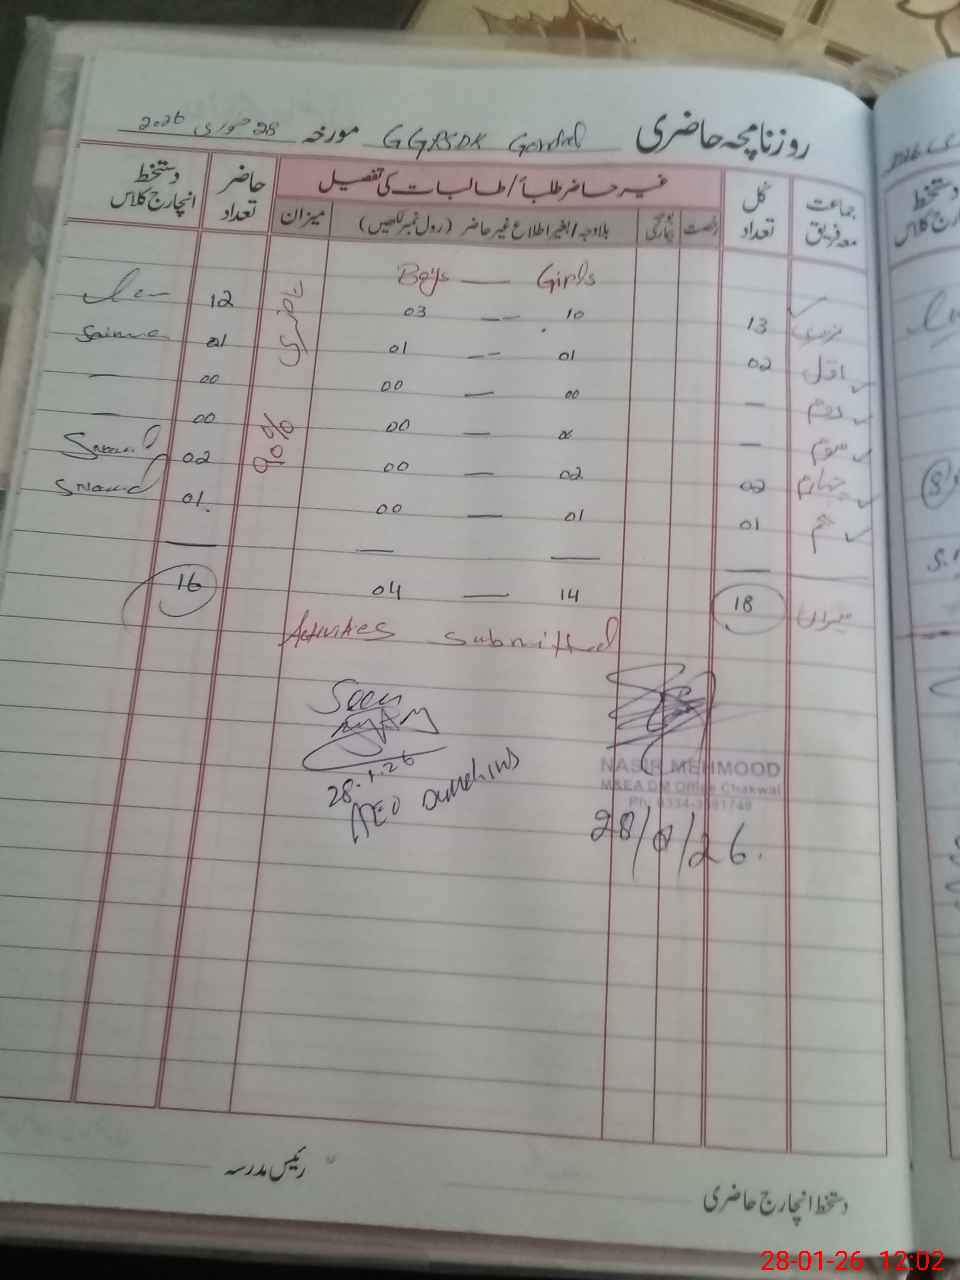 روزنامچہ حاضری GGPSDK Gondal مورخہ 28 جنوری 2026
جماعت معہ فریق کل تعداد غیر حاضر طلباء/طالبات کی تفصیل حاضر تعداد دستخط انچارج کلاس
رخصت بوجہ بیماری بلاوجہ/بغیر اطلاع غیر حاضر (رول نمبر لکھیں) میزان
Boys — Girls
نرسری 13 10 — 03 حاضری 12
اول 02 01 -- 01 01 Saima
دوم — 00 — 00 00 —
سوم — 00 — 00 90% 00 —
چہارم 02 02 — 00 02
پنجم 01 01 — 00 01.
— — — —
میزان 18 14 — 04 16
Activities Submitted
Seen
28.1.26
AEO
NASIR MEHMOOD
M&EA DM Office Chakwal
28/01/26.
رئیس مدرسہ
دستخط انچارج حاضری
28-01-26 12:02